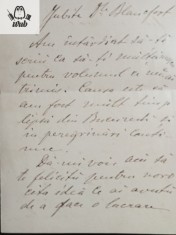 wub
Iubite Dle Blancfort
Am întârdiat să-ți
scriu ca să-ți mulțumesc
pentru volumul ce mi-ai
trimis. Causa este că
am fost mult timp
lipsă din Bucuresti și
în peregrinări conti
nue.
Dă-mi voie acum să
te felicit pentru
idee ce ai avut
de a face o lucrare